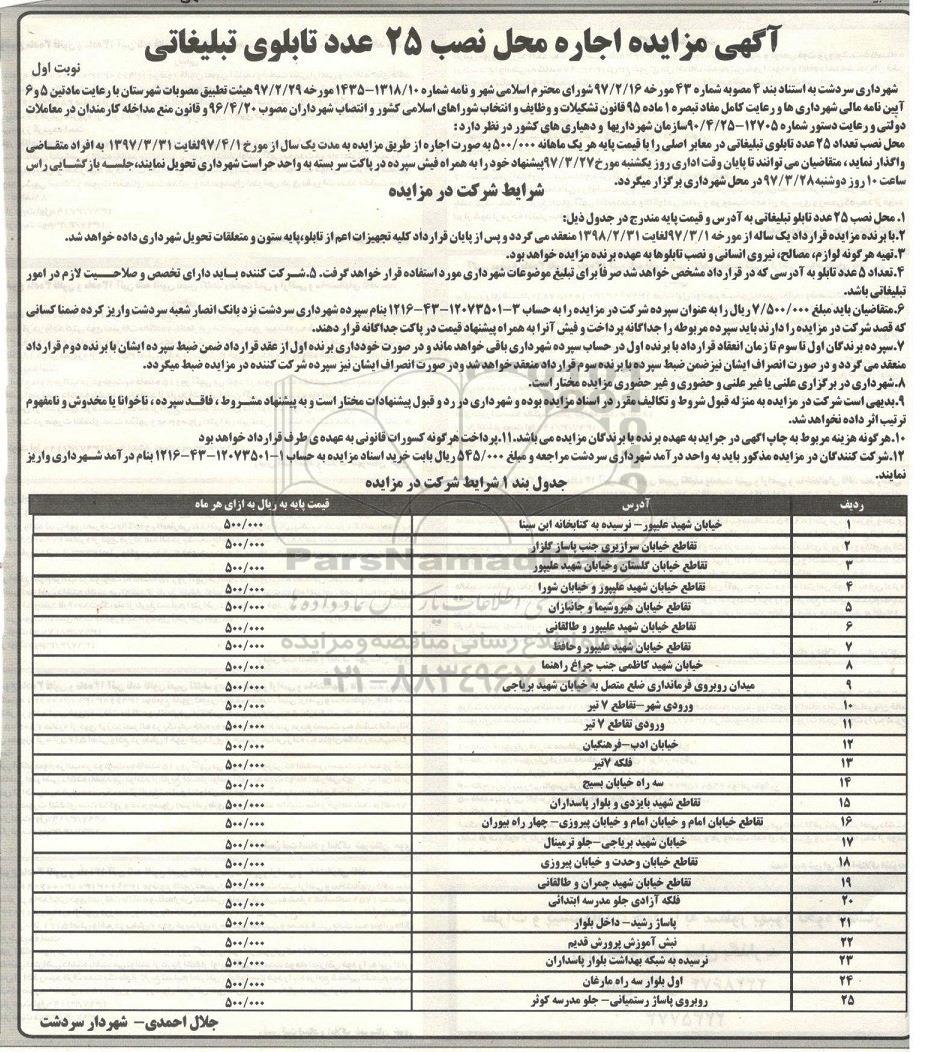 آگهی مزایده اجاره محل نصب ۲۵ عدد تابلوی تبلیغاتی
نوبت اول
شهرداری سردشت به استناد بند ۴ مصوبه شماره ۴۳ مورخه ۹۷/۲/۱۶ شورای محترم اسلامی شهر و نامه شماره ۱۴۳۵-۱۳۱۸/۱۰ مورخه ۹۷/۲/۲۹ هیئت تطبیق مصوبات شهرستان با رعایت مادتین ۵ و ۶
آیین نامه مالی شهرداری ها و رعایت کامل مفاد تبصره ۱ ماده ۹۵ قانون تشکیلات و وظایف و انتخاب شوراهای اسلامی کشور و انتصاب شهرداران مصوب ۹۶/۴/۲۰ و قانون منع مداخله کارمندان در معاملات
دولتی و رعایت دستور شماره ۱۲۷۰۵-۹۰/۴/۲۵ سازمان شهرداریها و دهیاری های کشور در نظر دارد :
محل نصب تعداد ۲۵ عدد تابلوی تبلیغاتی در معابر اصلی را با قیمت پایه هر یک ماهانه ۵۰۰/۰۰۰ به صورت اجاره از طریق مزایده به مدت یک سال از مورخ ۹۷/۴/۱ لغایت ۱۳۹۷/۳/۳۱ به افراد متقاضی
واگذار نماید ، متقاضیان می توانند تا پایان وقت اداری روز یکشنبه مورخ ۹۷/۳/۲۷ پیشنهاد خود را به همراه فیش سپرده در پاکت سر بسته به واحد حراست شهرداری تحویل نمایند، جلسه بازگشایی راس
ساعت ۱۰ روز دوشنبه ۹۷/۳/۲۸ در محل شهرداری برگزار میگردد.
شرایط شرکت در مزایده
۱. محل نصب ۲۵ عدد تابلو تبلیغاتی به آدرس و قیمت پایه مندرج در جدول ذیل:
۲. با برنده مزایده قرارداد یک ساله از مورخه ۹۷/۳/۱ لغایت ۱۳۹۸/۲/۳۱ منعقد می گردد و پس از پایان قرارداد کلیه تجهیزات اعم از تابلو، پایه ستون و متعلقات تحویل شهرداری داده خواهد شد.
۳. تهیه هرگونه لوازم، مصالح، نیروی انسانی و نصب تابلوها به عهده برنده مزایده خواهد بود.
۴. تعداد ۵ عدد تابلو به آدرسی که در قرارداد مشخص خواهد شد صرفاً برای تبلیغ موضوعات شهرداری مورد استفاده قرار خواهد گرفت. ۵. شرکت کننده باید دارای تخصص و صلاحیت لازم در امور
تبلیغاتی باشد.
۶. متقاضیان باید مبلغ ۷/۵۰۰/۰۰۰ ریال را به عنوان سپرده شرکت در مزایده را به حساب ۳-۱۲۰۷۳۵۰۱-۴۳-۱۲۱۶ بنام سپرده شهرداری سردشت نزد بانک انصار شعبه سردشت واریز گرده ضمنا کسانی
که قصد شرکت در مزایده را دارند باید سپرده مربوطه را جداگانه پرداخت و فیش آنرا به همراه پیشنهاد قیمت در پاکت جداگانه قرار دهند.
۷. سپرده برندگان اول تا سوم تا زمان انعقاد قرارداد با برنده اول در حساب سپرده شهرداری باقی خواهد ماند و در صورت خودداری برنده اول از عقد قرارداد ضمن ضبط سپرده ایشان با برنده دوم قرارداد
منعقد می گردد و در صورت انصراف ایشان نیز ضمن ضبط سپرده با برنده سوم قرارداد منعقد خواهد شد و در صورت انصراف ایشان نیز سپرده شرکت کننده در مزایده ضبط میگردد.
۸. شهرداری در برگزاری علنی یا غیر علنی و حضوری و غیر حضوری مزایده مختار است.
۹. بدیهی است شرکت در مزایده به منزله قبول شروط و تکالیف مقرر در اسناد مزایده بوده و شهرداری در رد و قبول پیشنهادات مختار است و به پیشنهاد مشروط ، فاقد سپرده ، ناخوانا یا مخدوش و نامفهوم
ترتیب اثر داده نخواهد شد.
۱۰. هرگونه هزینه مربوط به چاپ اگهی در جراید به عهده برنده یا برندگان مزایده می باشد. ۱۱. پرداخت هرگونه کسورات قانونی به عهده ی طرف قرارداد خواهد بود
۱۲. شرکت کنندگان در مزایده مذکور باید به واحد درآمد شهرداری سردشت مراجعه و مبلغ ۵۴۵/۰۰۰ ریال بابت خرید اسناد مزایده به حساب ۱-۱۲۰۷۳۵۰۱-۴۳-۱۲۱۶ بنام درآمد شهرداری واریز
نمایند.
جدول بند ۱ شرایط شرکت در مزایده
ردیف آدرس قیمت پایه به ریال به ازای هر ماه
۱ خیابان شهید علیپور- نرسیده به کتابخانه ابن سینا ۵۰۰/۰۰۰
۲ تقاطع خیابان سرازیری جنب پاساز گلزار ۵۰۰/۰۰۰
۳ تقاطع خیابان گلستان وخیابان شهید علیپور ۵۰۰/۰۰۰
۴ تقاطع خیابان شهید علیپور و خیابان شورا ۵۰۰/۰۰۰
۵ تقاطع خیابان هیروشیما و جانبازان ۵۰۰/۰۰۰
۶ تقاطع خیابان شهید علیپور و طالقانی ۵۰۰/۰۰۰
۷ تقاطع خیابان شهید علیپور وحافظ ۵۰۰/۰۰۰
۸ خیابان شهید کاظمی جنب چراغ راهنما ۵۰۰/۰۰۰
۹ میدان روبروی فرمانداری ضلع متصل به خیابان شهید بریاجی ۵۰۰/۰۰۰
۱۰ ورودی شهر-تقاطع ۷ تیر ۵۰۰/۰۰۰
۱۱ ورودی تقاطع ۷ تیر ۵۰۰/۰۰۰
۱۲ خیابان ادب-فرهنگیان ۵۰۰/۰۰۰
۱۳ فلکه ۷تیر ۵۰۰/۰۰۰
۱۴ سه راه خیابان بسیج ۵۰۰/۰۰۰
۱۵ تقاطع شهید بایزدی و بلوار پاسداران ۵۰۰/۰۰۰
۱۶ تقاطع خیابان امام و خیابان امام و خیابان پیروزی- چهار راه بیوران ۵۰۰/۰۰۰
۱۷ خیابان شهید بریاجی-جلو ترمینال ۵۰۰/۰۰۰
۱۸ تقاطع خیابان وحدت و خیابان پیروزی ۵۰۰/۰۰۰
۱۹ تقاطع خیابان شهید چمران و طالقانی ۵۰۰/۰۰۰
۲۰ فلکه آزادی جلو مدرسه ابتدائی ۵۰۰/۰۰۰
۲۱ پاساژ رشید- داخل بلوار ۵۰۰/۰۰۰
۲۲ نبش آموزش پرورش قدیم ۵۰۰/۰۰۰
۲۳ نرسیده به شبکه بهداشت بلوار پاسداران ۵۰۰/۰۰۰
۲۴ اول بلوار سه راه مارغان ۵۰۰/۰۰۰
۲۵ روبروی پاساژ رستمیانی- جلو مدرسه کوثر ۵۰۰/۰۰۰
جلال احمدی- شهردار سردشت
ParsNamadData
پایگاه اطلاع رسانی مناقصه و مزایده